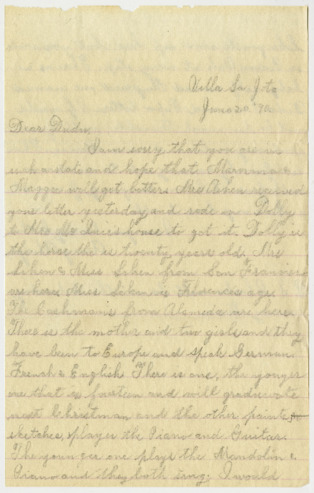 Villa La Jota
June 20" 92
Dear Dudu,
I am sorry that you are in
such a state and hope that Mamma &
Maggie will get better. Mrs received
your letter yesterday and rode on Dolly
to Mrs house to get it. Dolly is
the horse she is twenty years old. Mrs
& Miss from San Francisco
are here. Miss is Florences age.
The Cashman's from Alameda are here.
There is the mother and two girls and they
have been to Europe and speak German
French & English. There is one, the younger
one that is fourteen and will graduate
next Christmas and the other paints
sketches, plays the Piano and Guitar.
The younger one plays the Mandolin &
Piano and they both sing. I would